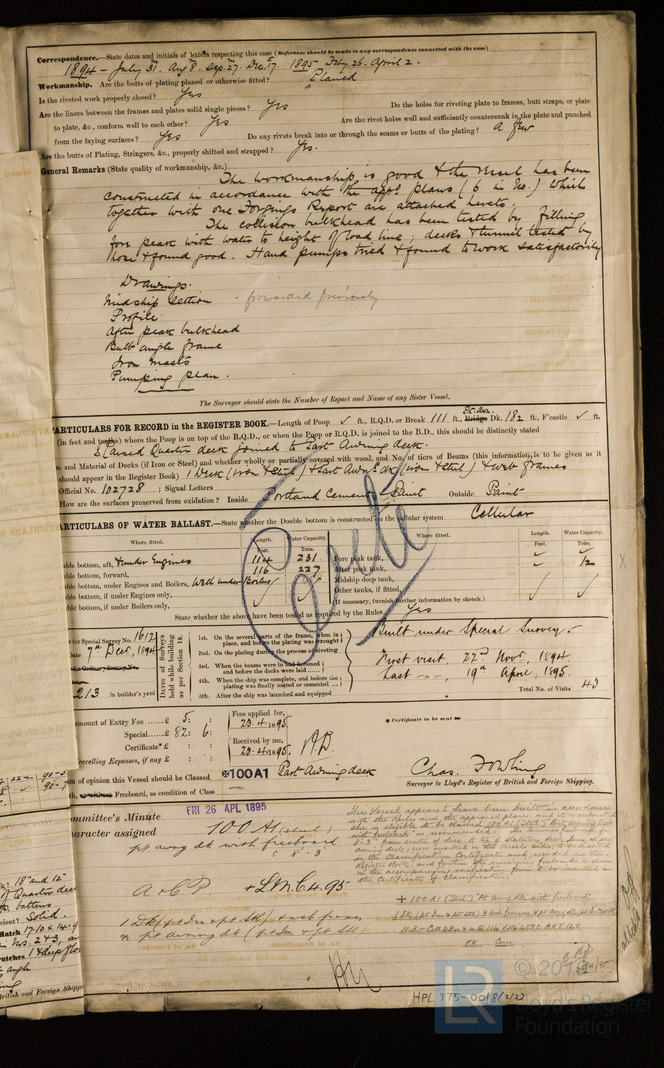 Correspondence.—State dates and initials of letters respecting this case (Reference should be made to any correspondence connected with the case)
1894 – July 31. Aug 8. Sep. 27. Dec. 17. 1895 Feby. 26. April 2.
Workmanship. Are the butts of plating planed or otherwise fitted? Planed
Is the riveted work properly closed? Yes
Are the liners between the frames and plates solid single pieces? Yes Do the holes for riveting plate to frames, butt straps, or plate
to plate, &c., conform well to each other? Yes Are the rivet holes well and sufficiently countersunk in the plate and punched
from the faying surfaces? Yes Do any rivets break into or through the seams or butts of the plating? A few
Are the butts of Plating, Stringers, &c., properly shifted and strapped? Yes.
General Remarks (State quality of workmanship, &c.)
The workmanship is good & the vessel has been
constructed in accordance with the appd. plans (6 in No.) which
together with one Forgings Report are attached hereto.
The collision bulkhead has been tested by filling
fore peak with water to height of load line; decks & tunnel tested by
hose & found good. Hand pumps tried & found to work satisfactorily
Drawings.
Midship Section - forwarded previously
Profile
After peak bulkhead
Bulb angle frame
Iron masts
Pumping plan.
The Surveyor should state the Number of Report and Name of any Sister Vessel.
PARTICULARS FOR RECORD in the REGISTER BOOK.—Length of Poop ✓ ft., R.Q.D. or Break 111 ft., Bridge Pt. Awn. Dk. 182 ft., F'castle ✓ ft.
(in feet and tenths) where the Poop is on top of the R.Q.D., or when the Poop or R.Q.D. is joined to the B.D., this should be distinctly stated
Raised Quarter deck joined to Part Awning deck.
o. and Material of Decks (if Iron or Steel) and whether wholly or partially covered with wood, and No. of tiers of Beams (this information is to be given as it
should appear in Register Book) 1 Deck (iron & steel) & Part Awng dk (iron & steel) & web frames
Official No. 102728; Signal Letters
How are the surfaces preserved from oxidation? Inside Portland Cement & Paint Outside Paint
PARTICULARS OF WATER BALLAST.—State whether the Double bottom is constructed on the cellular system Cellular
Where fitted. Length. Feet. Water Capacity. Tons. Where fitted. Length. Feet. Water Capacity. Tons.
ble bottom, aft, & under Engines 114 231 Fore peak tank, ✓ ✓
ble bottom, forward, 116 227 After peak tank, ✓ 12
ble bottom, under Engines and Boilers, Well under Boilers Midship deep tank,
ble bottom, if under Engines only, ✓ ✓ Other tanks, if fitted, ✓ ✓
ble bottom, if under Boilers only, (If necessary, furnish further information by sketch.)
State whether the above have been tested as required by the Rules Yes
er for Special Survey No. 1612
Date 7th Decr. 1894
213 in builder's yard
DATES of Surveys held while building as per Section 18.
1st. On the several parts of the frame, when in place, and before the plating was wrought
2nd. On the plating during the process of riveting
3rd. When the beams were in and fastened and before the decks were laid
4th. When the ship was complete, and before the plating was finally coated or cemented
5th. After the ship was launched and equipped
Built under Special Survey.
First visit. 22nd Novr. 1894.
Last „ „ 19th April, 1895.
Total No. of Visits 43
Credit
amount of Entry Fee ......£ 5: :
Special......£ 82: 6:
Certificate* £ : :
Travelling Expenses, if any £ : :
Fees applied for, 23.4.1895.
Received by me, 29.4.1895.
* Certificate to be sent
m of opinion this Vessel should be Classed ✠100A1 Part Awning deck
th, Freeboard, as condition of Class
Chas. Dowling
Surveyor to Lloyd's Register of British and Foreign Shipping.
ommittee's Minute FRI 26 APL 1895
haracter assigned 100 A1 (steel)
pt awng dk with freeboard
8'-3"
A & C P + L.M.C. 4.95
1 Dk (pt Irn & pt Stl) & web frames
& pt awning dk (pt Irn & pt Stl)
This Vessel appears to have been built in accordance
with the Rules and the approved plans, and it is submitted
she is eligible to be classed 100 A1 (Steel) "Part Awning dk"
with freeboard as recommended.
in the Classification Certificate
the Certificate of Classification.
+ 100 A1 (Steel) "Pt awng dk with freeboard
18" and 12"
Quarter deck
battens
Solid.
Hatch
British and Foreign Shipping
HPL 375-0018(2/2)
LR
© 2019
Lloyd's Register
Foundation